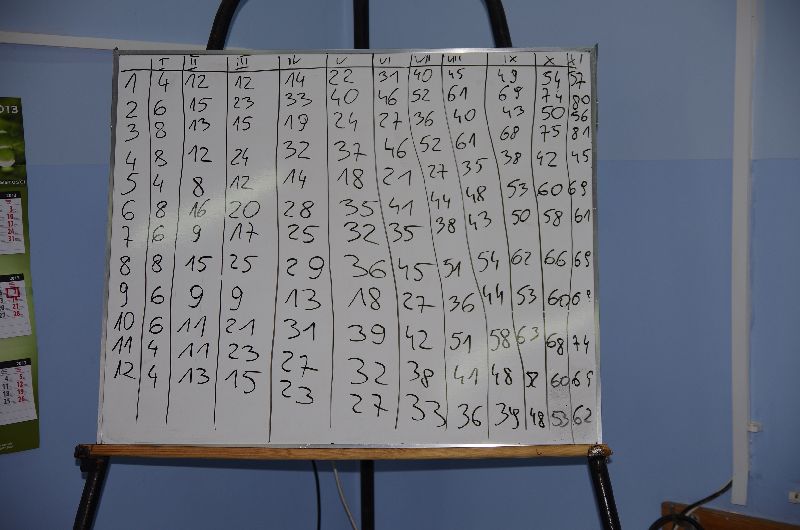 I II III IV V VI VII VIII IX X XI
1 4 12 12 14 22 31 40 45 49 54 57
2 6 15 23 33 40 46 52 61 69 74 80
3 8 13 15 19 24 27 36 40 43 50 56
4 8 12 24 32 37 46 52 61 68 75 81
5 4 8 12 14 18 21 27 35 38 42 45
6 8 16 20 28 35 41 44 48 53 60 69
7 6 9 17 25 32 35 38 43 50 58 61
8 8 15 25 29 36 45 51 54 62 66 69
9 6 9 9 13 18 27 36 44 53 60
10 6 11 21 31 39 42 51 58 63 68 74
11 4 11 23 27 32 38 41 48 60 65
12 4 13 15 23 27 33 36 39 48 53 62
2013